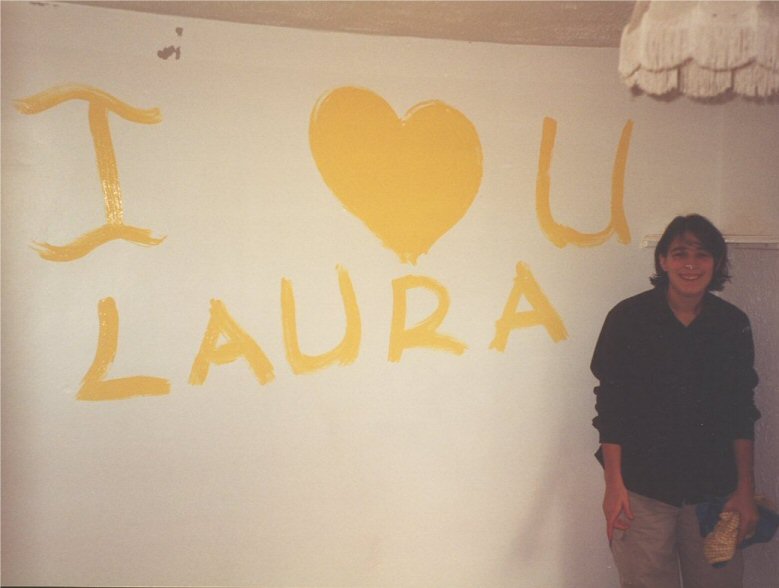 I ♥ U
LAURA